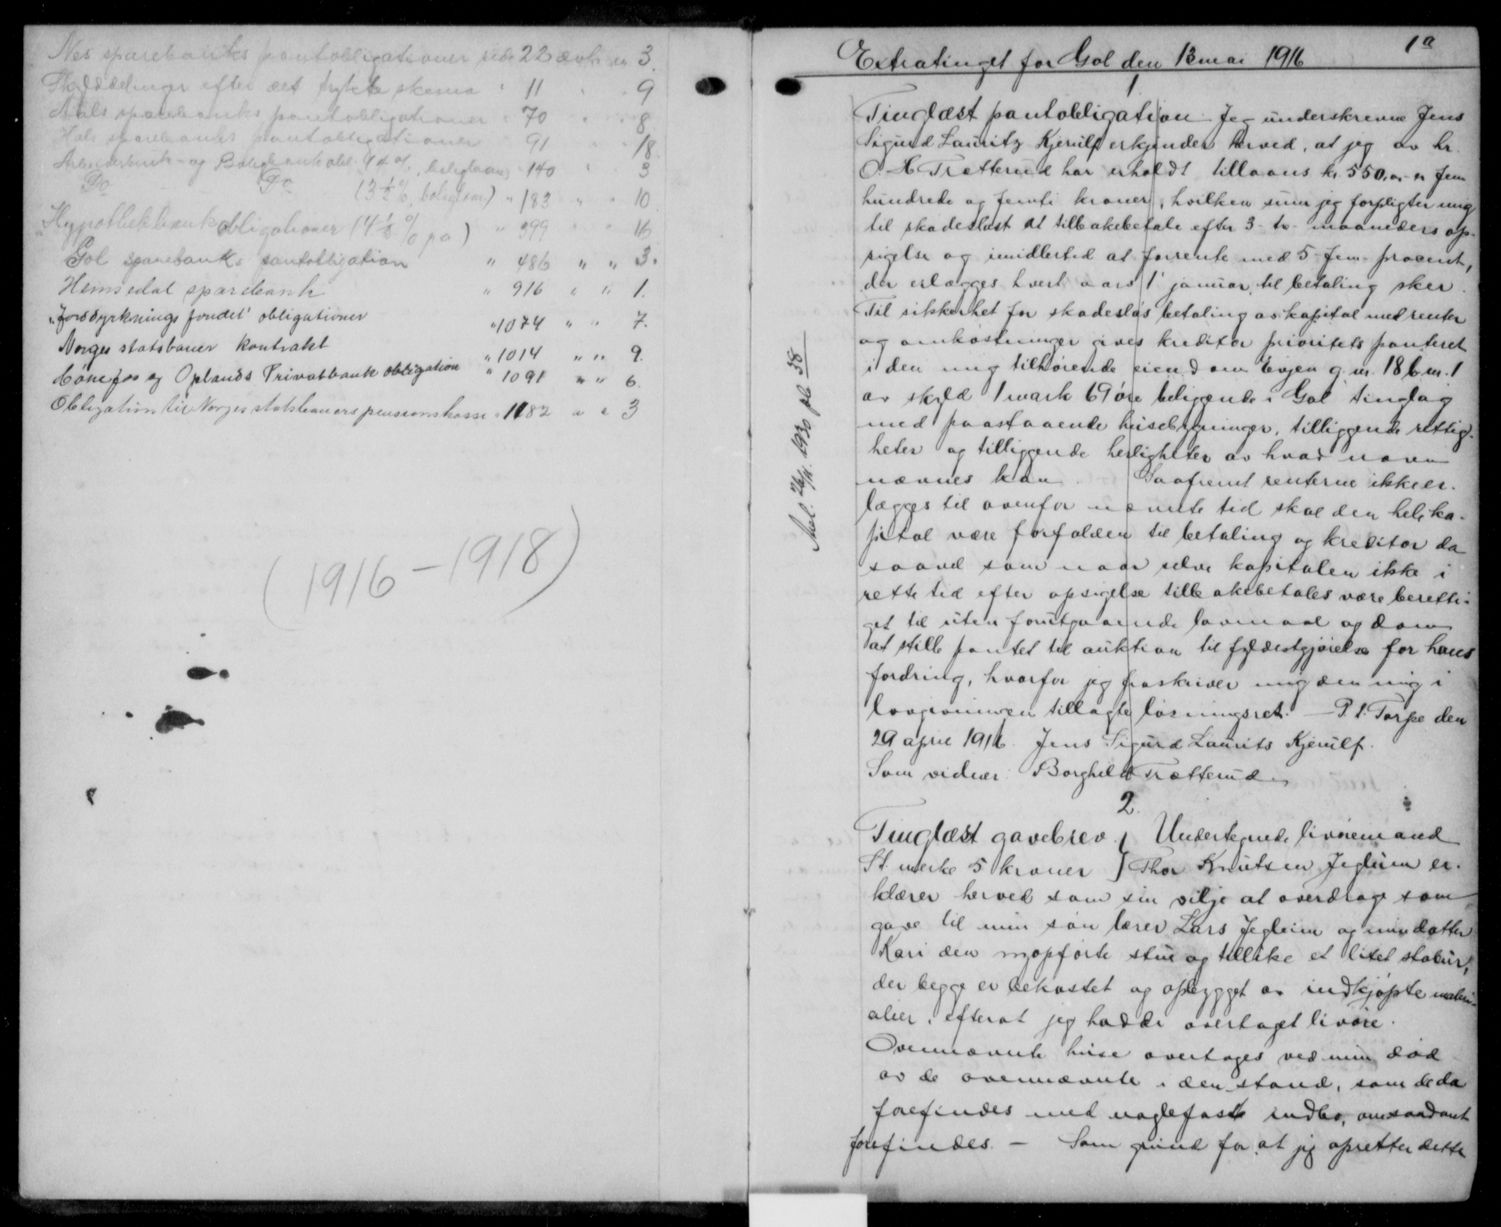 Nes sparebanks pantobligationer side 22 dok. nr 3.
Skylddelinger efter det trykte skema " 11 " " 9
Aals sparebanks pantobligationer " 70 " " 8
Hols sparebanks pantobligationer 91 " 18
Arbeiderbruk- og Boligbank obl. (4 %, boliglaan) " 140 " 3
Do Do (3 ½ %, boliglaan) " 183 " " 10
Hypothekbankobligationer (4 ½ % p a) " 299 " " 16
Gol sparebanks pantobligation " 486 " " 3.
Hemsedal sparebank " 916 " " 1.
"Jorddyrkningsfondet" obligationer " 1074 " " 7.
Norges statsbaner kontrakt " 1014 " " 9.
Hønefos og Oplands Privatbank obligation " 1091 " " 6.
Obligation til Norges statsbaners pensionskasse " 1182 " " 3
(1916 – 1918)
Extratinget for Gol den 13 mai 1916
1a
1
Tinglæst pantobligation Jeg underskrevne Jens
Sigurd Lauritz Kjerulf erkjender herved, at jeg av hr.
O. H. Trøtterud har erholdt tillaans kr. 550,00 fem
hundrede og femti kroner, hvilken sum jeg forpligter mig
til skadesløst at tilbakebetale efter 3 – tre – maaneders op-
sigelse og imidlertid at forrente med 5 – fem – procent,
der erlægges hvert aars 1 januar, til betaling sker.
Til sikkerhet for skadesløs betaling av kapital med renter
og omkostninger gives kreditor prioritets panteret
i den mig tilhørende eiendom Eigen g. nr. 18 b. nr. 1
av skyld 1 mark 69 øre beliggende i Gol tinglag
med paastaaende husebygninger, tilliggende rettig-
heter og tilliggende herligheter av hvad navn
nævnes kan. Saafremt renterne ikke er-
lægges til ovenfor nævnte tid skal den hele ka-
pital være forfalden til betaling og kreditor da
saavel som naar selve kapitalen ikke i
rette tid efter opsigelse tilbakebetales være beretti-
get til uten forutgaaende lovmaal og dom
at stille pantet til auktion til fyldestgjørelse for hans
fordring, hvorfor jeg fraskriver mig den mig i
lovgivningen tillagte løsningsret. – P. t. Torpe den
29 april 1916. Jens Sigurd Laurits Kjerulf.
Som vidner: Borghild Trøtterud
Avl. 26/11 1930 pb 58
2.
Tinglæst gavebrev } Undertegnede livøremand
St. merke 5 kroner } Thor Knutsen Jegleim er-
klærer herved som sin vilje at overdrage som
gave til min søn lærer Lars Jegleim og min datter
Kari den nyopførte stue og tillike et litet stabur,
der begge er bekostet og opbygget av indkjøpte materi-
alier, efterat jeg hadde overtaget livøre.
Ovennævnte huse overtages ved min død
av de ovennævnte i den stand, som de da
forefindes med naglefaste indbo, om saadant
forefindes. – Som grund for at jeg opretter dette